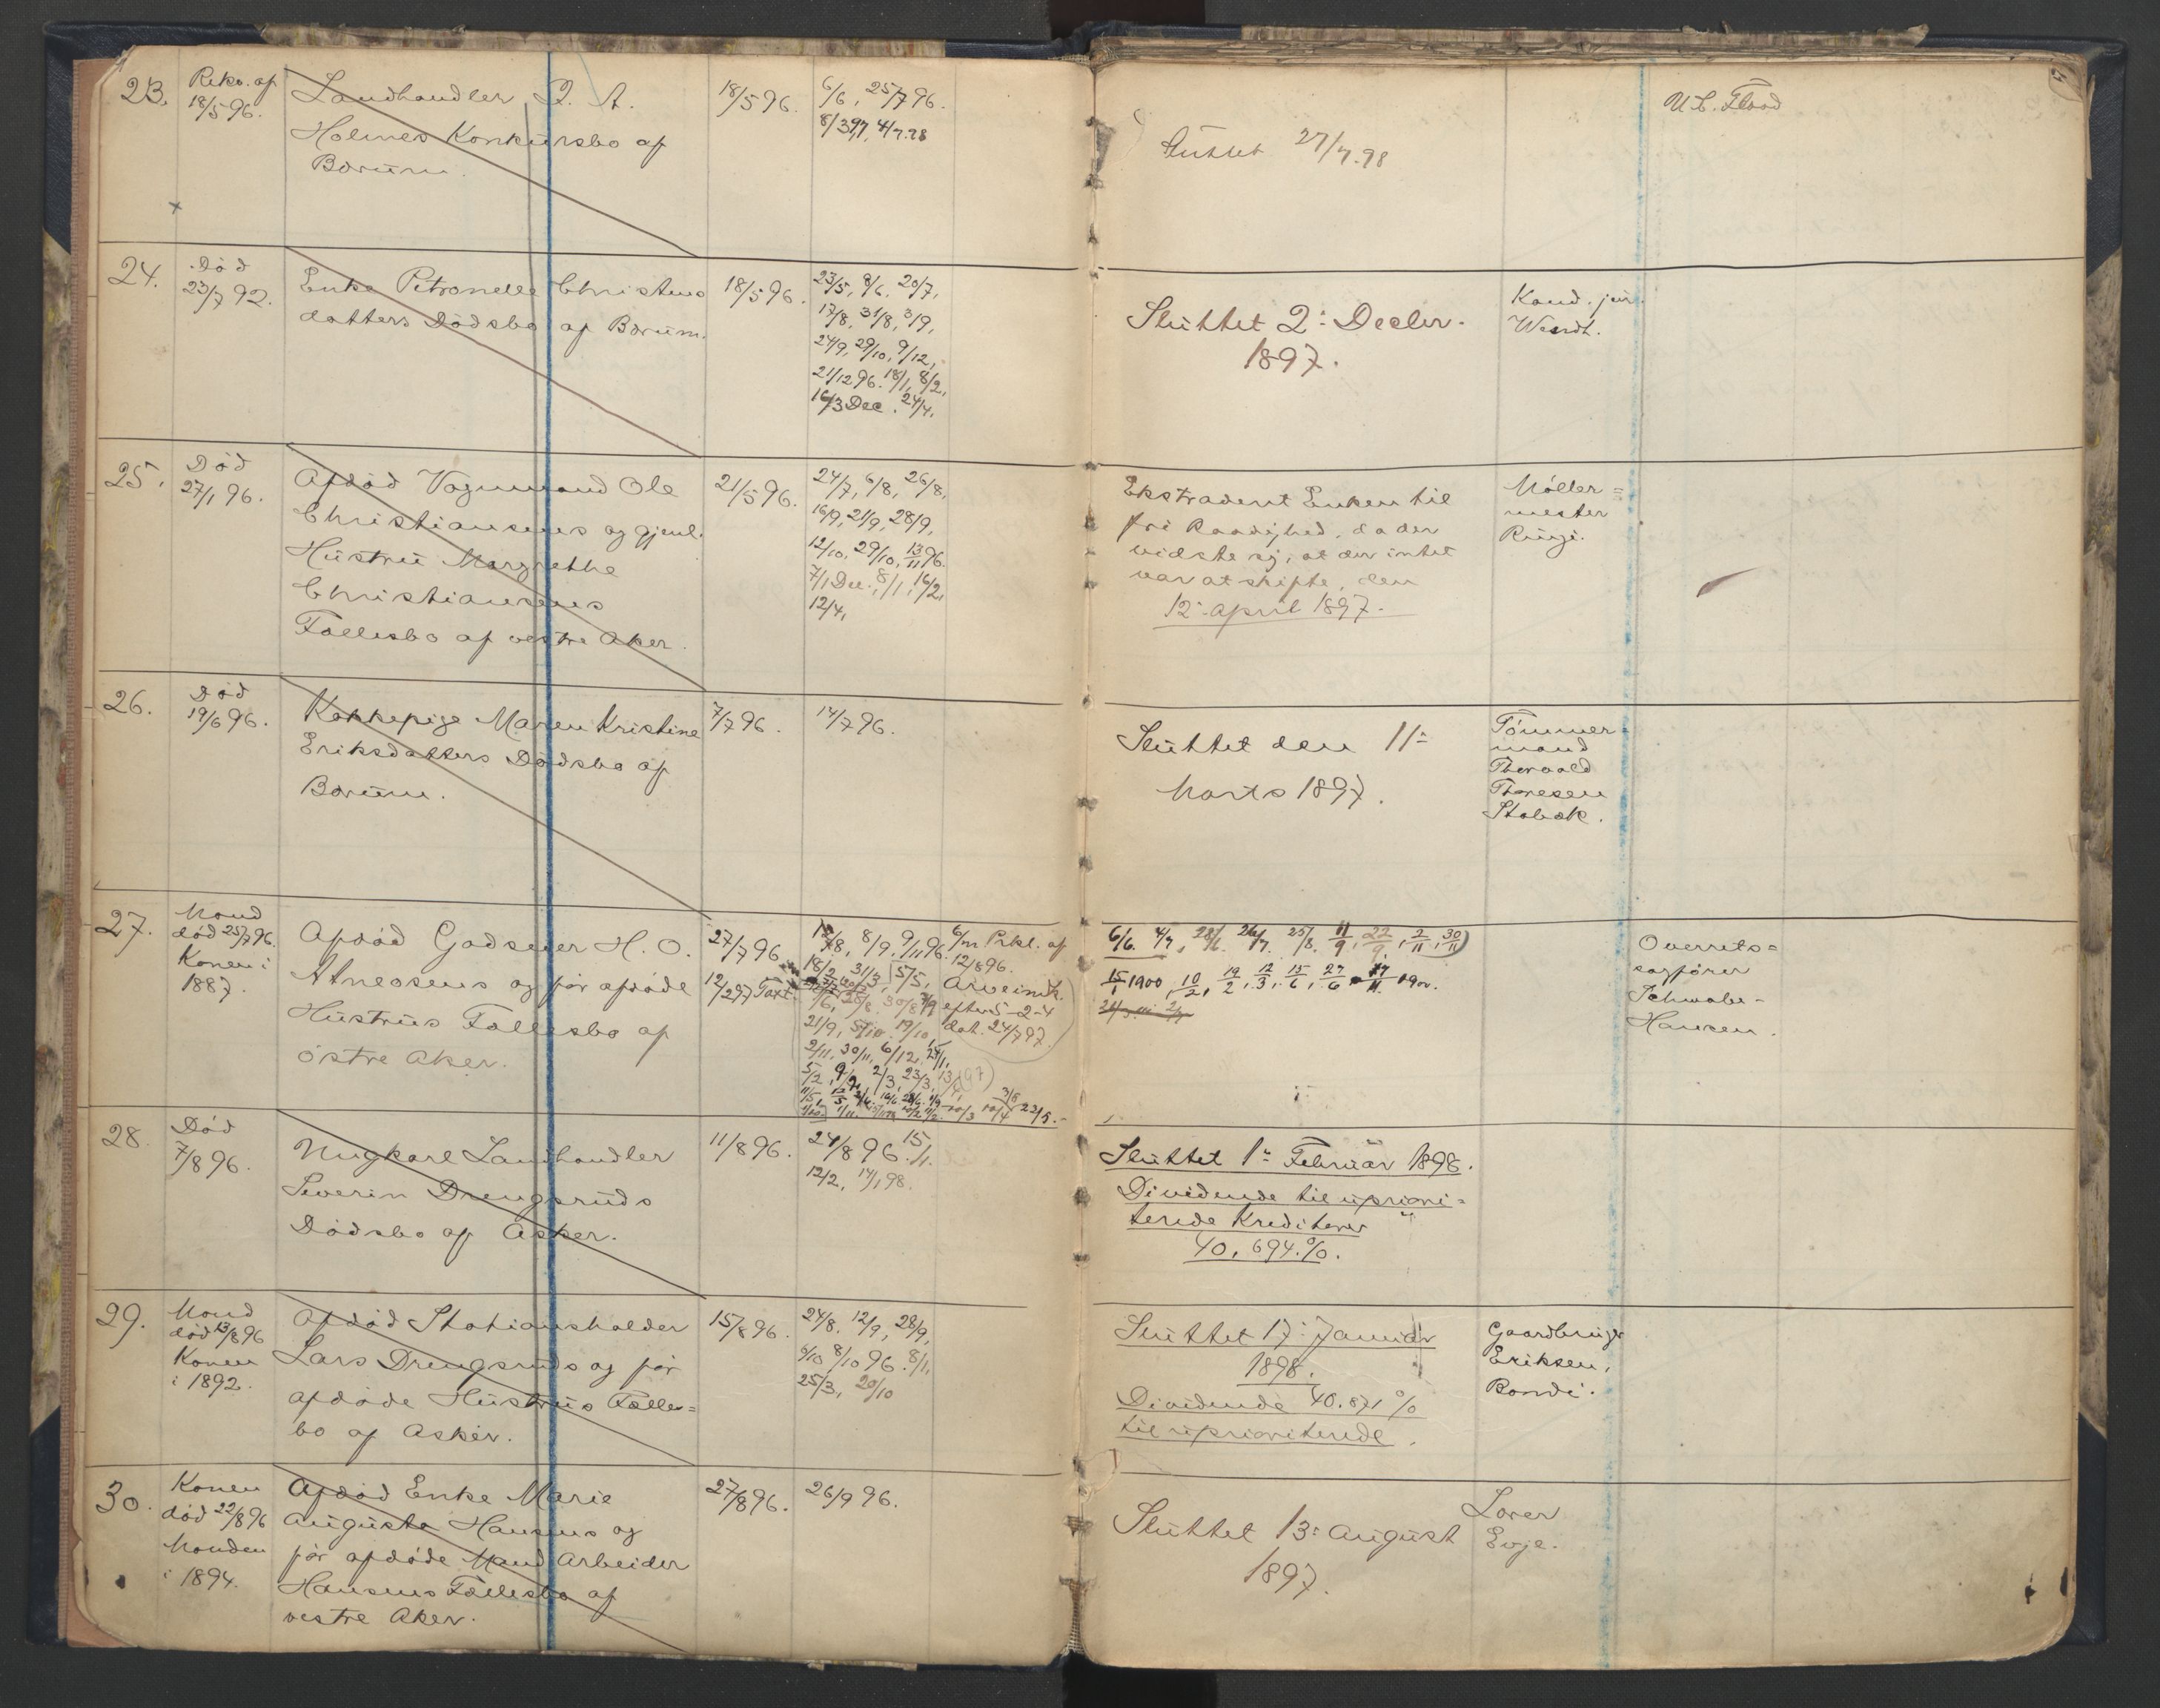 23.
Reko. af
18/5 96.
Landhandler
Holmes Konkursbo af
Bærum.
18/5 96.
6/6, 25/7 96.
Sluttet 27/4.98
24.
Død
23/7 92.
Enke Petronelle Christens
datters Dødsbo af Bærum.
18/5 96.
23/5, 8/6. 20/7,
17/8, 31/8, 3/9,
24/9, 29/10, 9/12,
21/12 96. 18/1, 8/2,
16/3 Dec. 24/4.
Sluttet 2: Decbr.
1897.
Kand. jur.
Wendt.
25.
Død
27/1 96.
Afdød Vognmand Ole
Christiansens og gjenl.
Hustru Margrethe
Christiansens
Fællesbo af vestre Aker.
21/5 96.
24/7, 6/8, 26/8,
16/9, 21/9, 28/9,
12/10, 29/10, 13/11 96.
7/1 Dec., 8/1, 16/2,
12/4,
Ekstradert Enken til
fri Raadighed, da der
vidste sig, at der intet
var at skifte, den
12: April 1897.
Møller=
mester
Ringi.
26.
Død
19/6 96.
Kokkepige Maren Kristine
Eriksdatters Dødsbo af
Bærum.
7/7 96.
14/7 96.
Sluttet den 11:
Marts 1897.
Tømmer
mand
Thorvald
Thoresen
Stabæk.
27.
Mand
død 25/7 96.
Konen i
1887.
Afdød Gadseier H. O.
Atneosens og før afdøde
Hustrus Fællesbo af
østre Aker.
27/7 96
12/2 97 Taxt.
8/9. 9/11 96.
Prkl. af
12/8 96.
18/2 31/3, 5/5,
efter 5-2-4
dat. 24/7 97.
21/9, 5/10. 19/10,
2/11, 30/11, 6/12,
5/2, 2/3, 23/3,
6/6. 4/7, 28/6. 26/7. 25/8. 11/9, 22/9, 2/11, 30/11)
15/1 1900, 10/2, 19/2, 12/3, 15/6, 27/6
Overrets=
sagfører
Schwabe-
Hansen.
28.
Død
7/8 96.
Ungkarl Landhandler
Severin Drengsruds
Dødsbo af Asker.
11/8 96.
24/8 96. 15/1.
12/2, 14/1 98.
Sluttet 1: Februar 1898.
Dividende til upriori=
terede Kreditorer
40,694 %.
29.
Mand
død 13/8 96
Konen
i 1892.
Afdød Stationsholder
Lars Drengsruds og før
afdøde Hustrus Fælles=
bo af Asker.
15/8 96.
24/8. 12/9, 28/9,
6/10 8/10 96. 8/1,
25/3, 20/10
Sluttet 17: Januar
1898.
Dividende 40.871 %
til uprioriterede.
Gaardbruger
Eriksen,
Bondi.
30.
Konen
død 22/8 96
Manden
i 1894.
Afdød Enke Marie
Augusta Hansens og
før afdøde Mand Arbeider
Hansens Fællesbo af
vestre Aker.
27/8 96.
26/9 96.
Sluttet 13: August
1897.
Lorer
Evje.